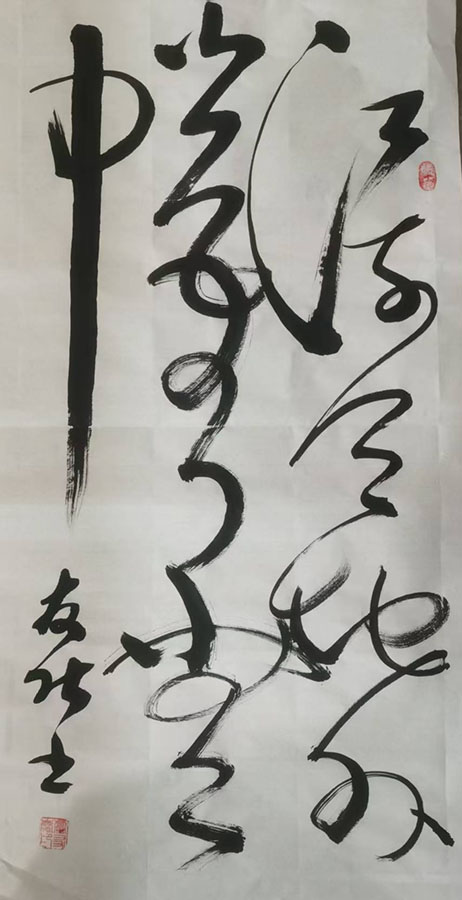 江流天地外
山色有无
中
友 书